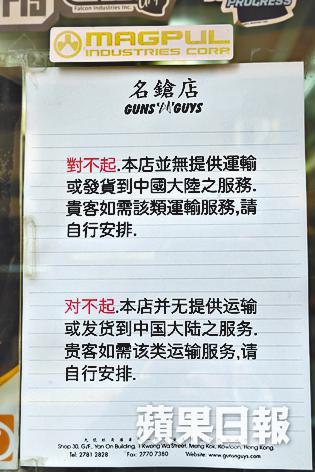 Falcon Industries Inc.
PROGRESS
MAGPUL
INDUSTRIES CORP
名鎗店
GUNS 'N' GUYS
對不起.本店並無提供運輸
或發貨到中國大陸之服務.
貴客如需該類運輸服務,請
自行安排.
对不起.本店并无提供运输
或发货到中国大陆之服务.
贵客如需该类运输服务,请
自行安排.
Shop 30, G/F., Van On Building, 1 Kwong Wa Street, Mong Kok, Kowloon, Hong Kong.
Tel: 2781 2828 Fax: 2770 7380 Website: www.gunsnguys.com
蘋果日報